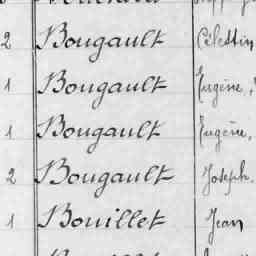 2 Bougault Célestin
1 Bougault Eugène,
1 Bougault Eugène,
2 Bougault Joseph.
1 Bouillet Jean